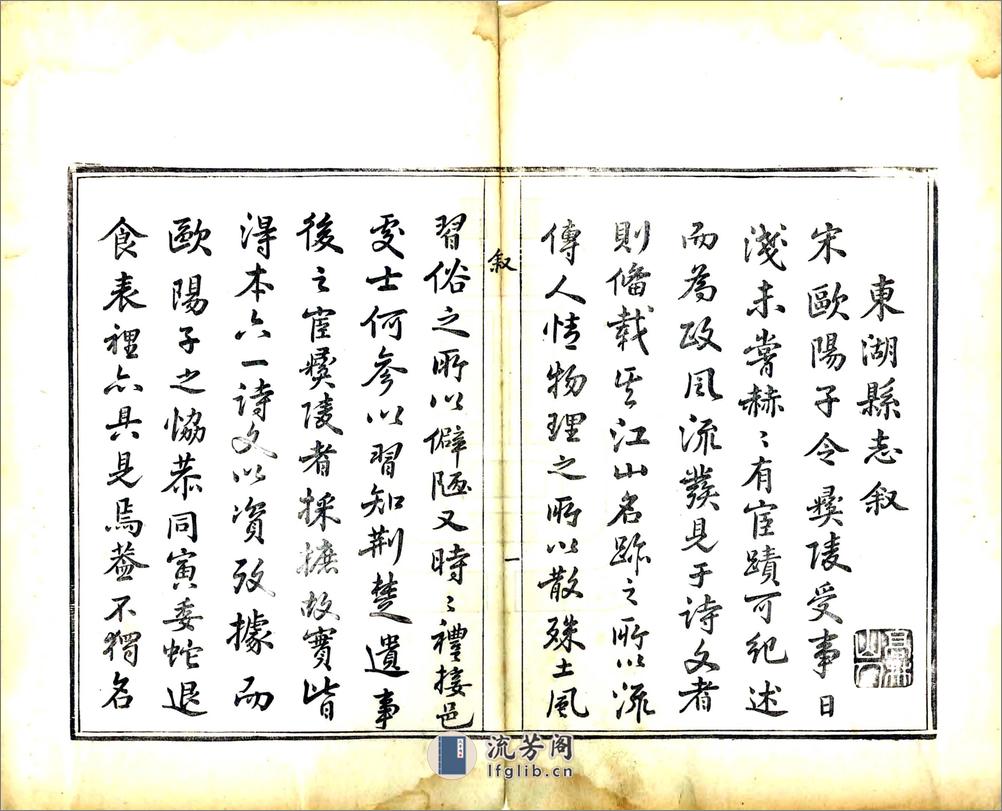 東湖縣志叙
宋歐陽子令彝陵受事日
淺未嘗赫〻有宦蹟可紀述
而為政風流發見于詩文者
則俻載其江山名跡之所以流
傳人情物理之所以散殊土風
叙
一
習俗之所以僻陋又時〻禮接邑
處士何參以習知荆楚遺事
後之宦彝陵者採摭故實皆
得本六一詩文以資攷據而
歐陽子之恊恭同寅委蛇退
食表裡亦具見焉葢不獨名
流芳阁
lfglib.cn